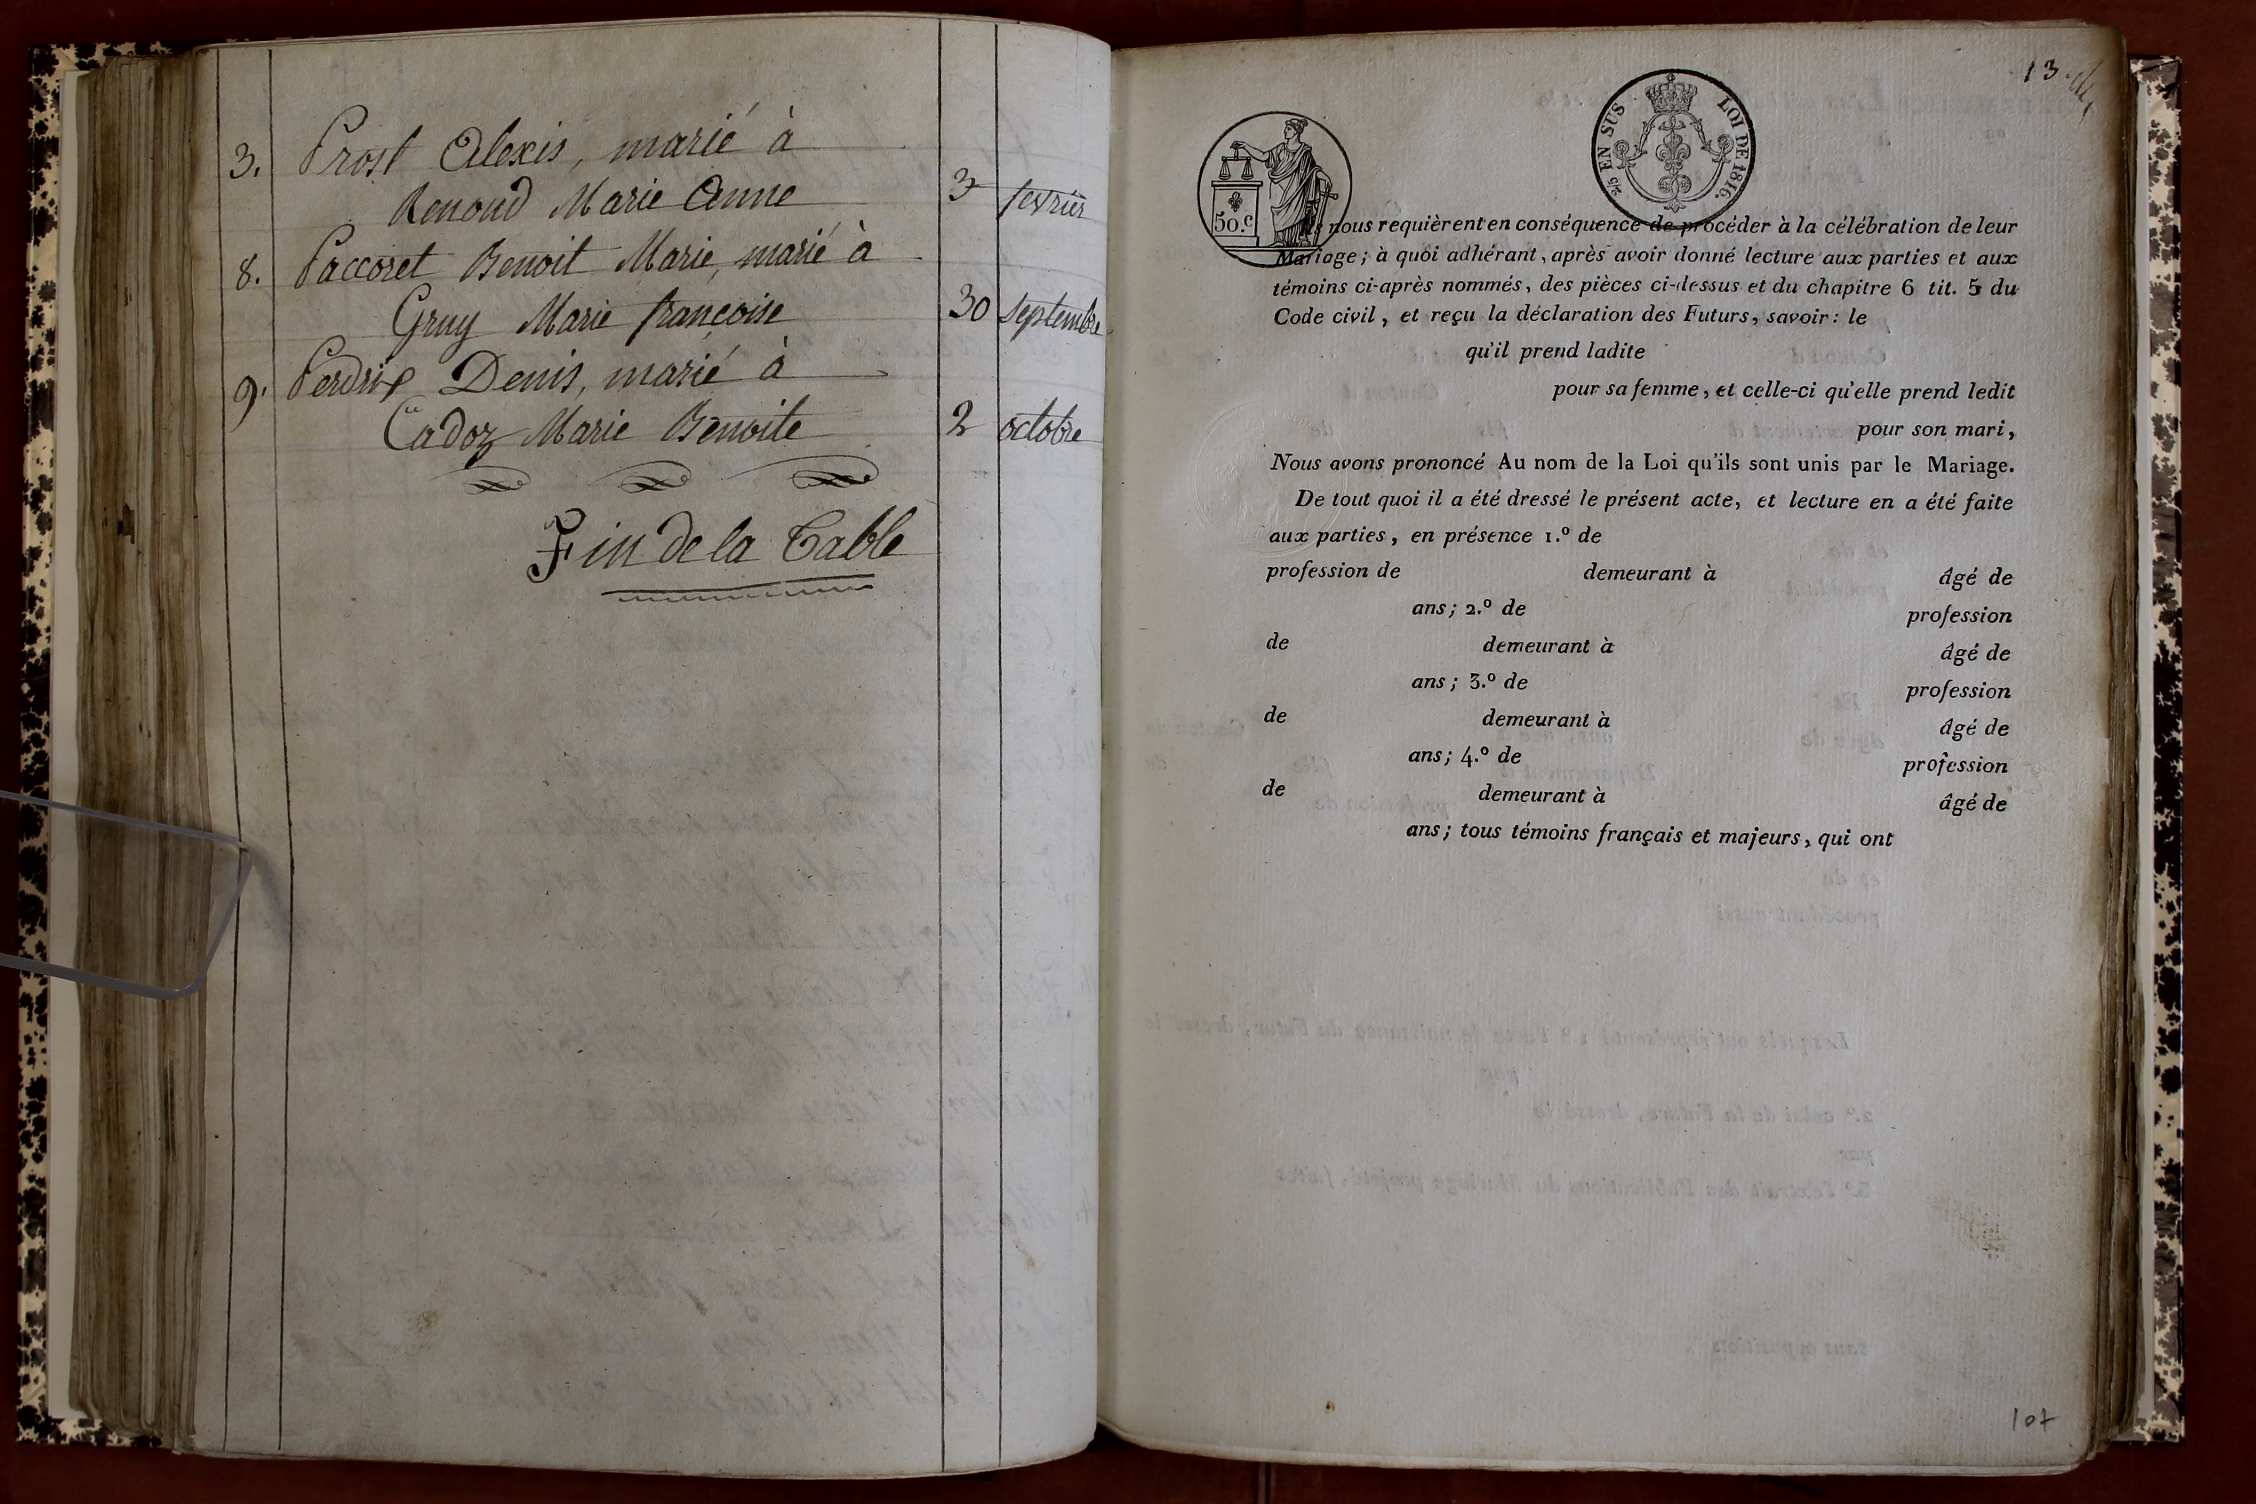 3. Prost Alexis, marié à
Renoud Marie Anne 3 fevrier
8. Paccoret Benoit Marie, marié à
Gruy Marie françoise 30 septembre
9. Perdrix Denis, marié à
Cadoz Marie Benoite 2 octobre
Fin de la Table
13
2/5 EN SUS LOI DE 1816.
50.c
Ils nous requièrent en conséquence de procéder à la célébration de leur
Mariage; à quoi adhérant, après avoir donné lecture aux parties et aux
témoins ci-après nommés, des pièces ci-dessus et du chapitre 6 tit. 5 du
Code civil, et reçu la déclaration des Futurs, savoir: le
qu'il prend ladite
pour sa femme, et celle-ci qu'elle prend ledit
pour son mari,
Nous avons prononcé Au nom de la Loi qu'ils sont unis par le Mariage.
De tout quoi il a été dressé le présent acte, et lecture en a été faite
aux parties, en présence 1.º de
profession de demeurant à âgé de
ans; 2.º de profession
de demeurant à âgé de
ans; 3.º de profession
de demeurant à âgé de
ans; 4.º de profession
de demeurant à âgé de
ans; tous témoins français et majeurs, qui ont
107